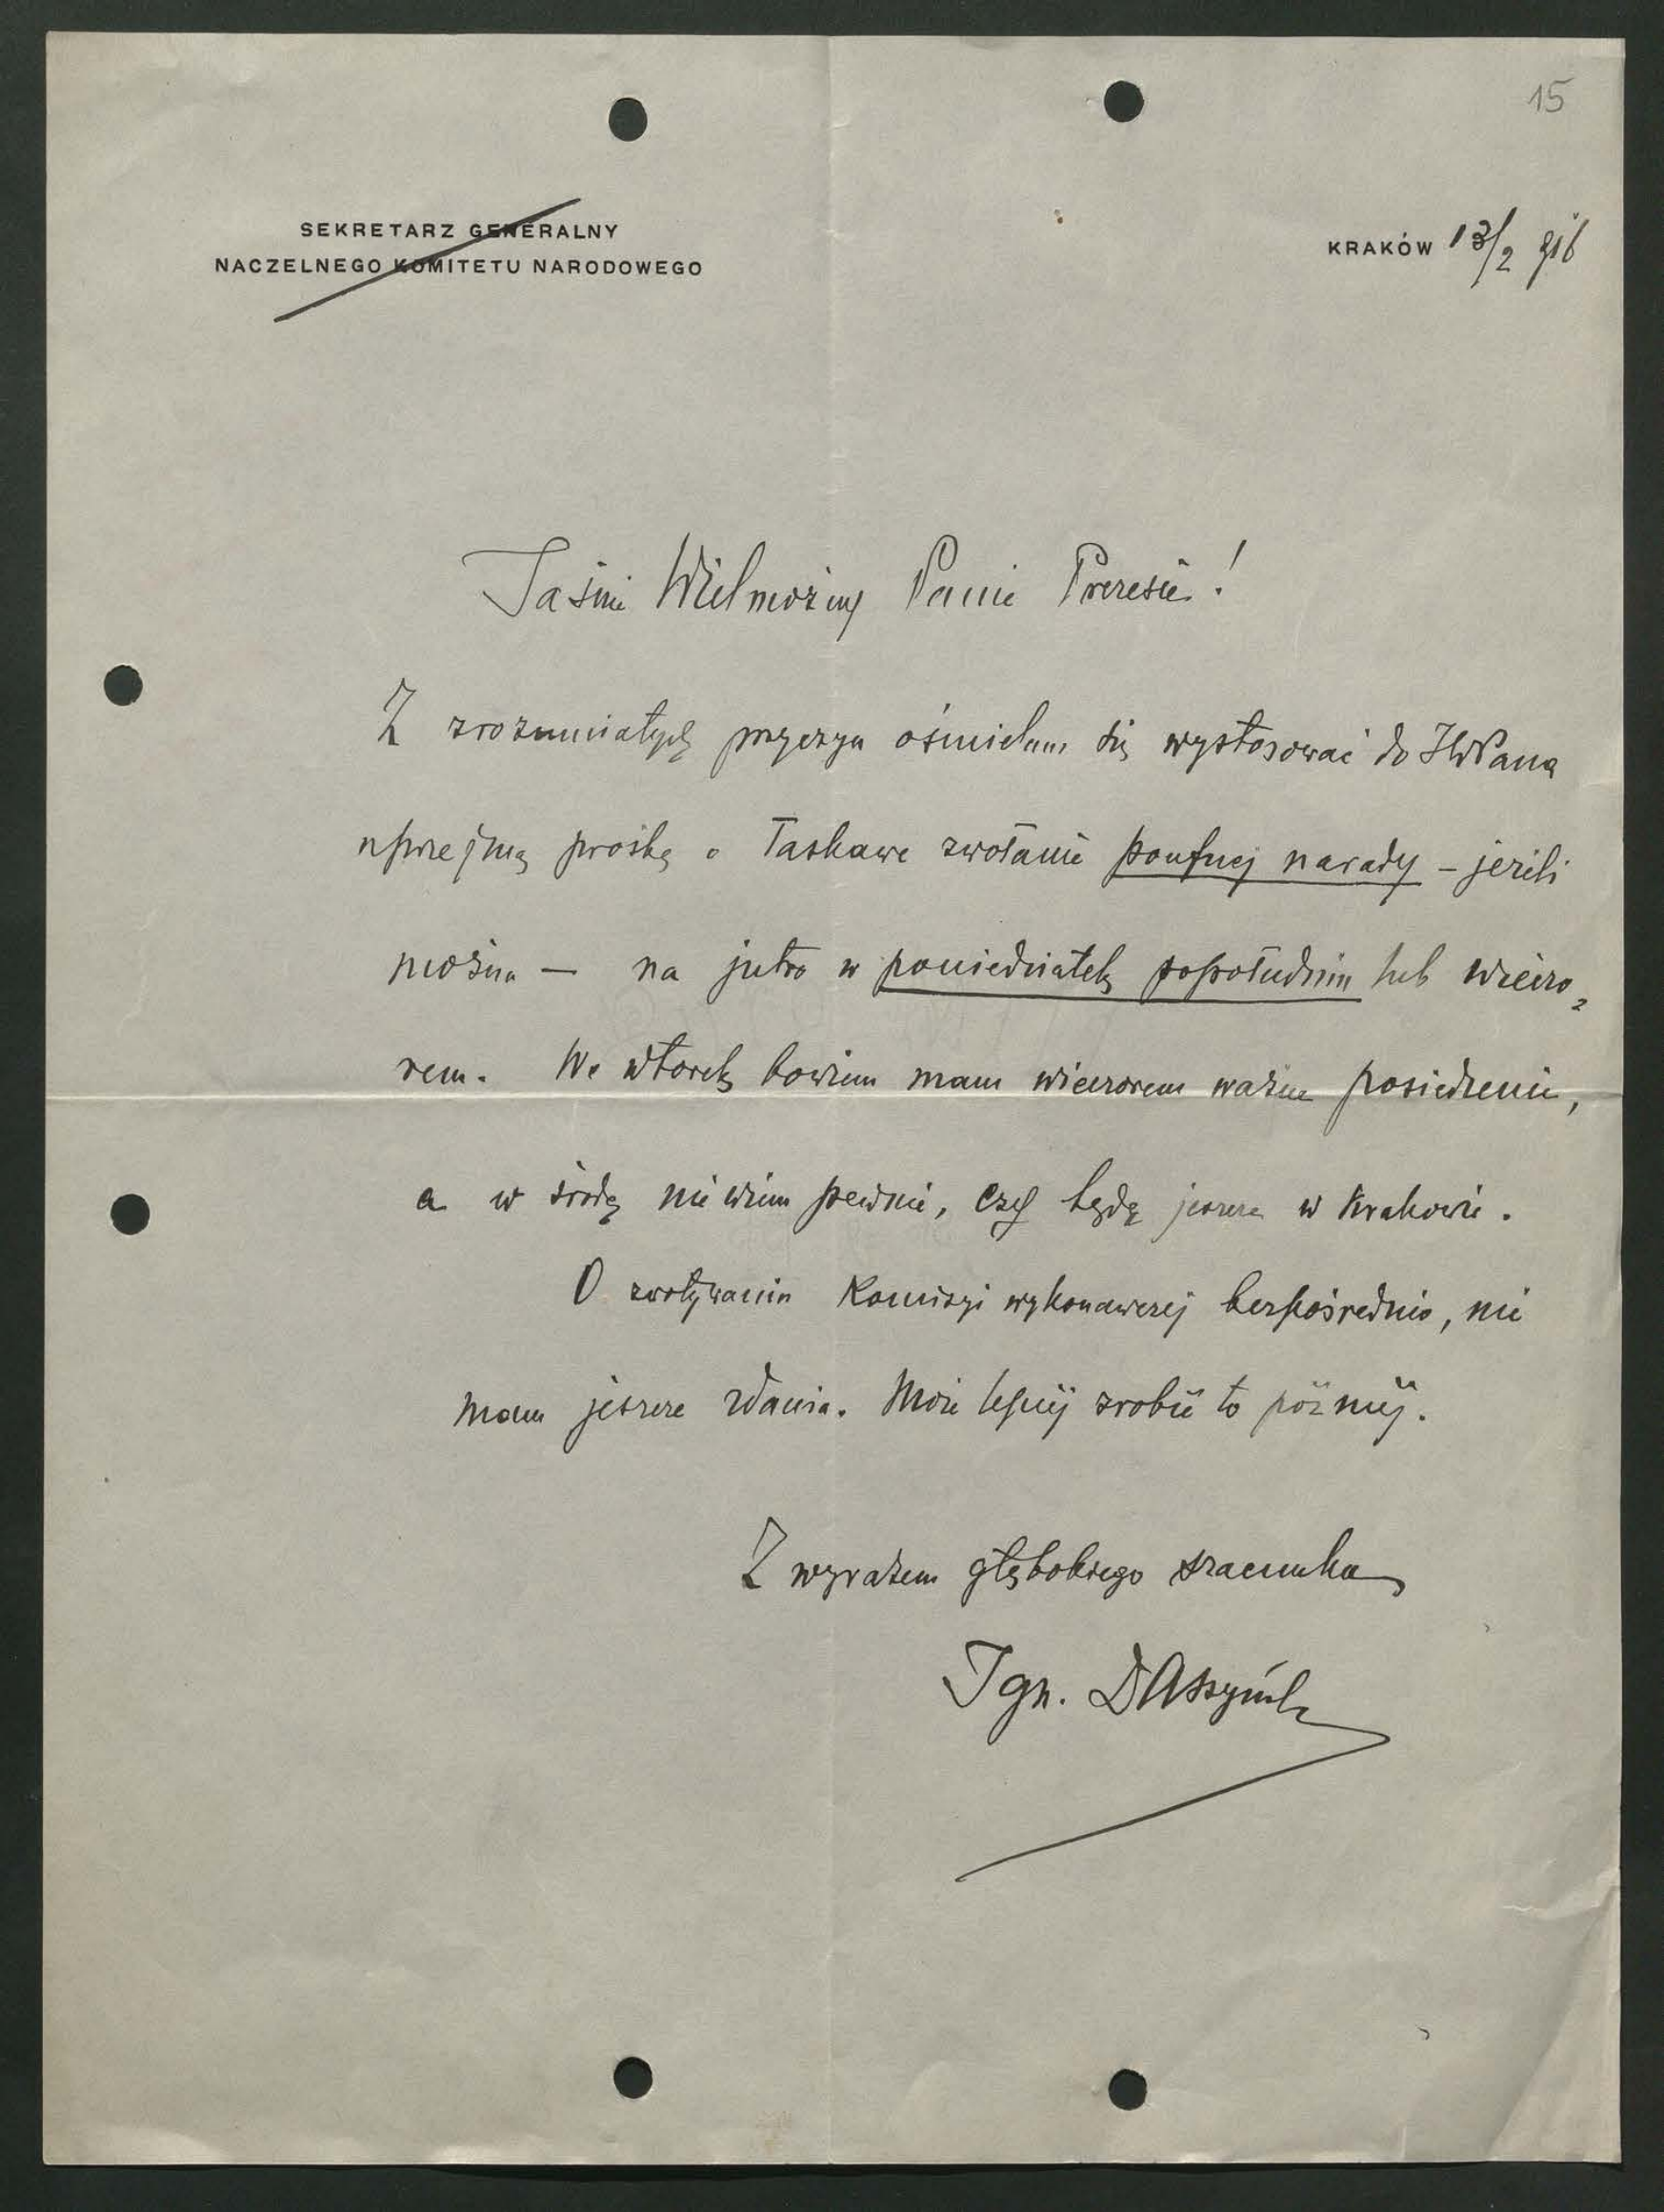 15
SEKRETARZ GENERALNY
NACZELNEGO KOMITETU NARODOWEGO
KRAKÓW 13/2 916
Jaśnie Wielmożny Panie Prezesie!
Z zrozumiałych przyczyn ośmielam się wystosować do JWPana
uprzejmą prośbę o łaskawe zwołanie poufnej narady – jeżeli
można — na jutro w poniedziałek popołudniu lub wieczo-
rem. We wtorek bowiem mam wieczorem ważne posiedzenie,
a w środę nie wiem pewnie, czy będę jeszcze w Krakowie.
O zwoływaniu Komisyi wykonawczej bezpośrednio, nie
mam jeszcze zdania. Może lepiej zrobić to później.
Z wyrazem głębokiego szacunku
Ign. Daszyński